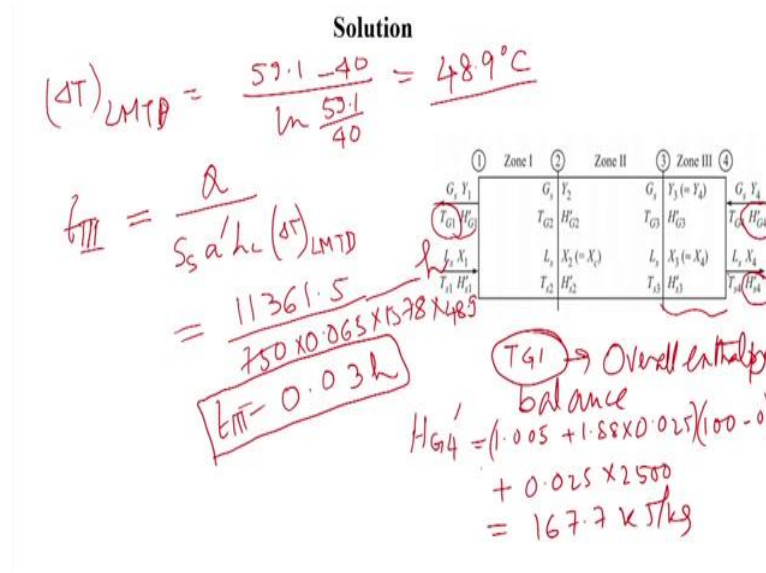 Solution
(ΔT)LMTD = (59.1 - 40) / (ln 59.1/40) = 48.9°C
tIII = Q / (Ss a' hc (ΔT)LMTD)
= 11361.5 / (750 × 0.065 × 1578 × 48.9) h
tIII - 0.03 h
① Zone I ② Zone II ③ Zone III ④
Gs Y1 Gs Y2 Gs Y3 (= Y4) Gs Y4
TG1 H'G1 TG2 H'G2 TG3 H'G3 TG H'G4
Ls X1 Ls X2 (= Xc) Ls X3 (= X4) Ls X4
Ts1 H's1 Ts2 H's2 Ts3 H's3 Ts4 H's4
TG1 → Overall enthalpy
balance
HG4' = (1.005 + 1.88 × 0.025)(100 - 0
+ 0.025 × 2500
= 167.7 kJ/kg